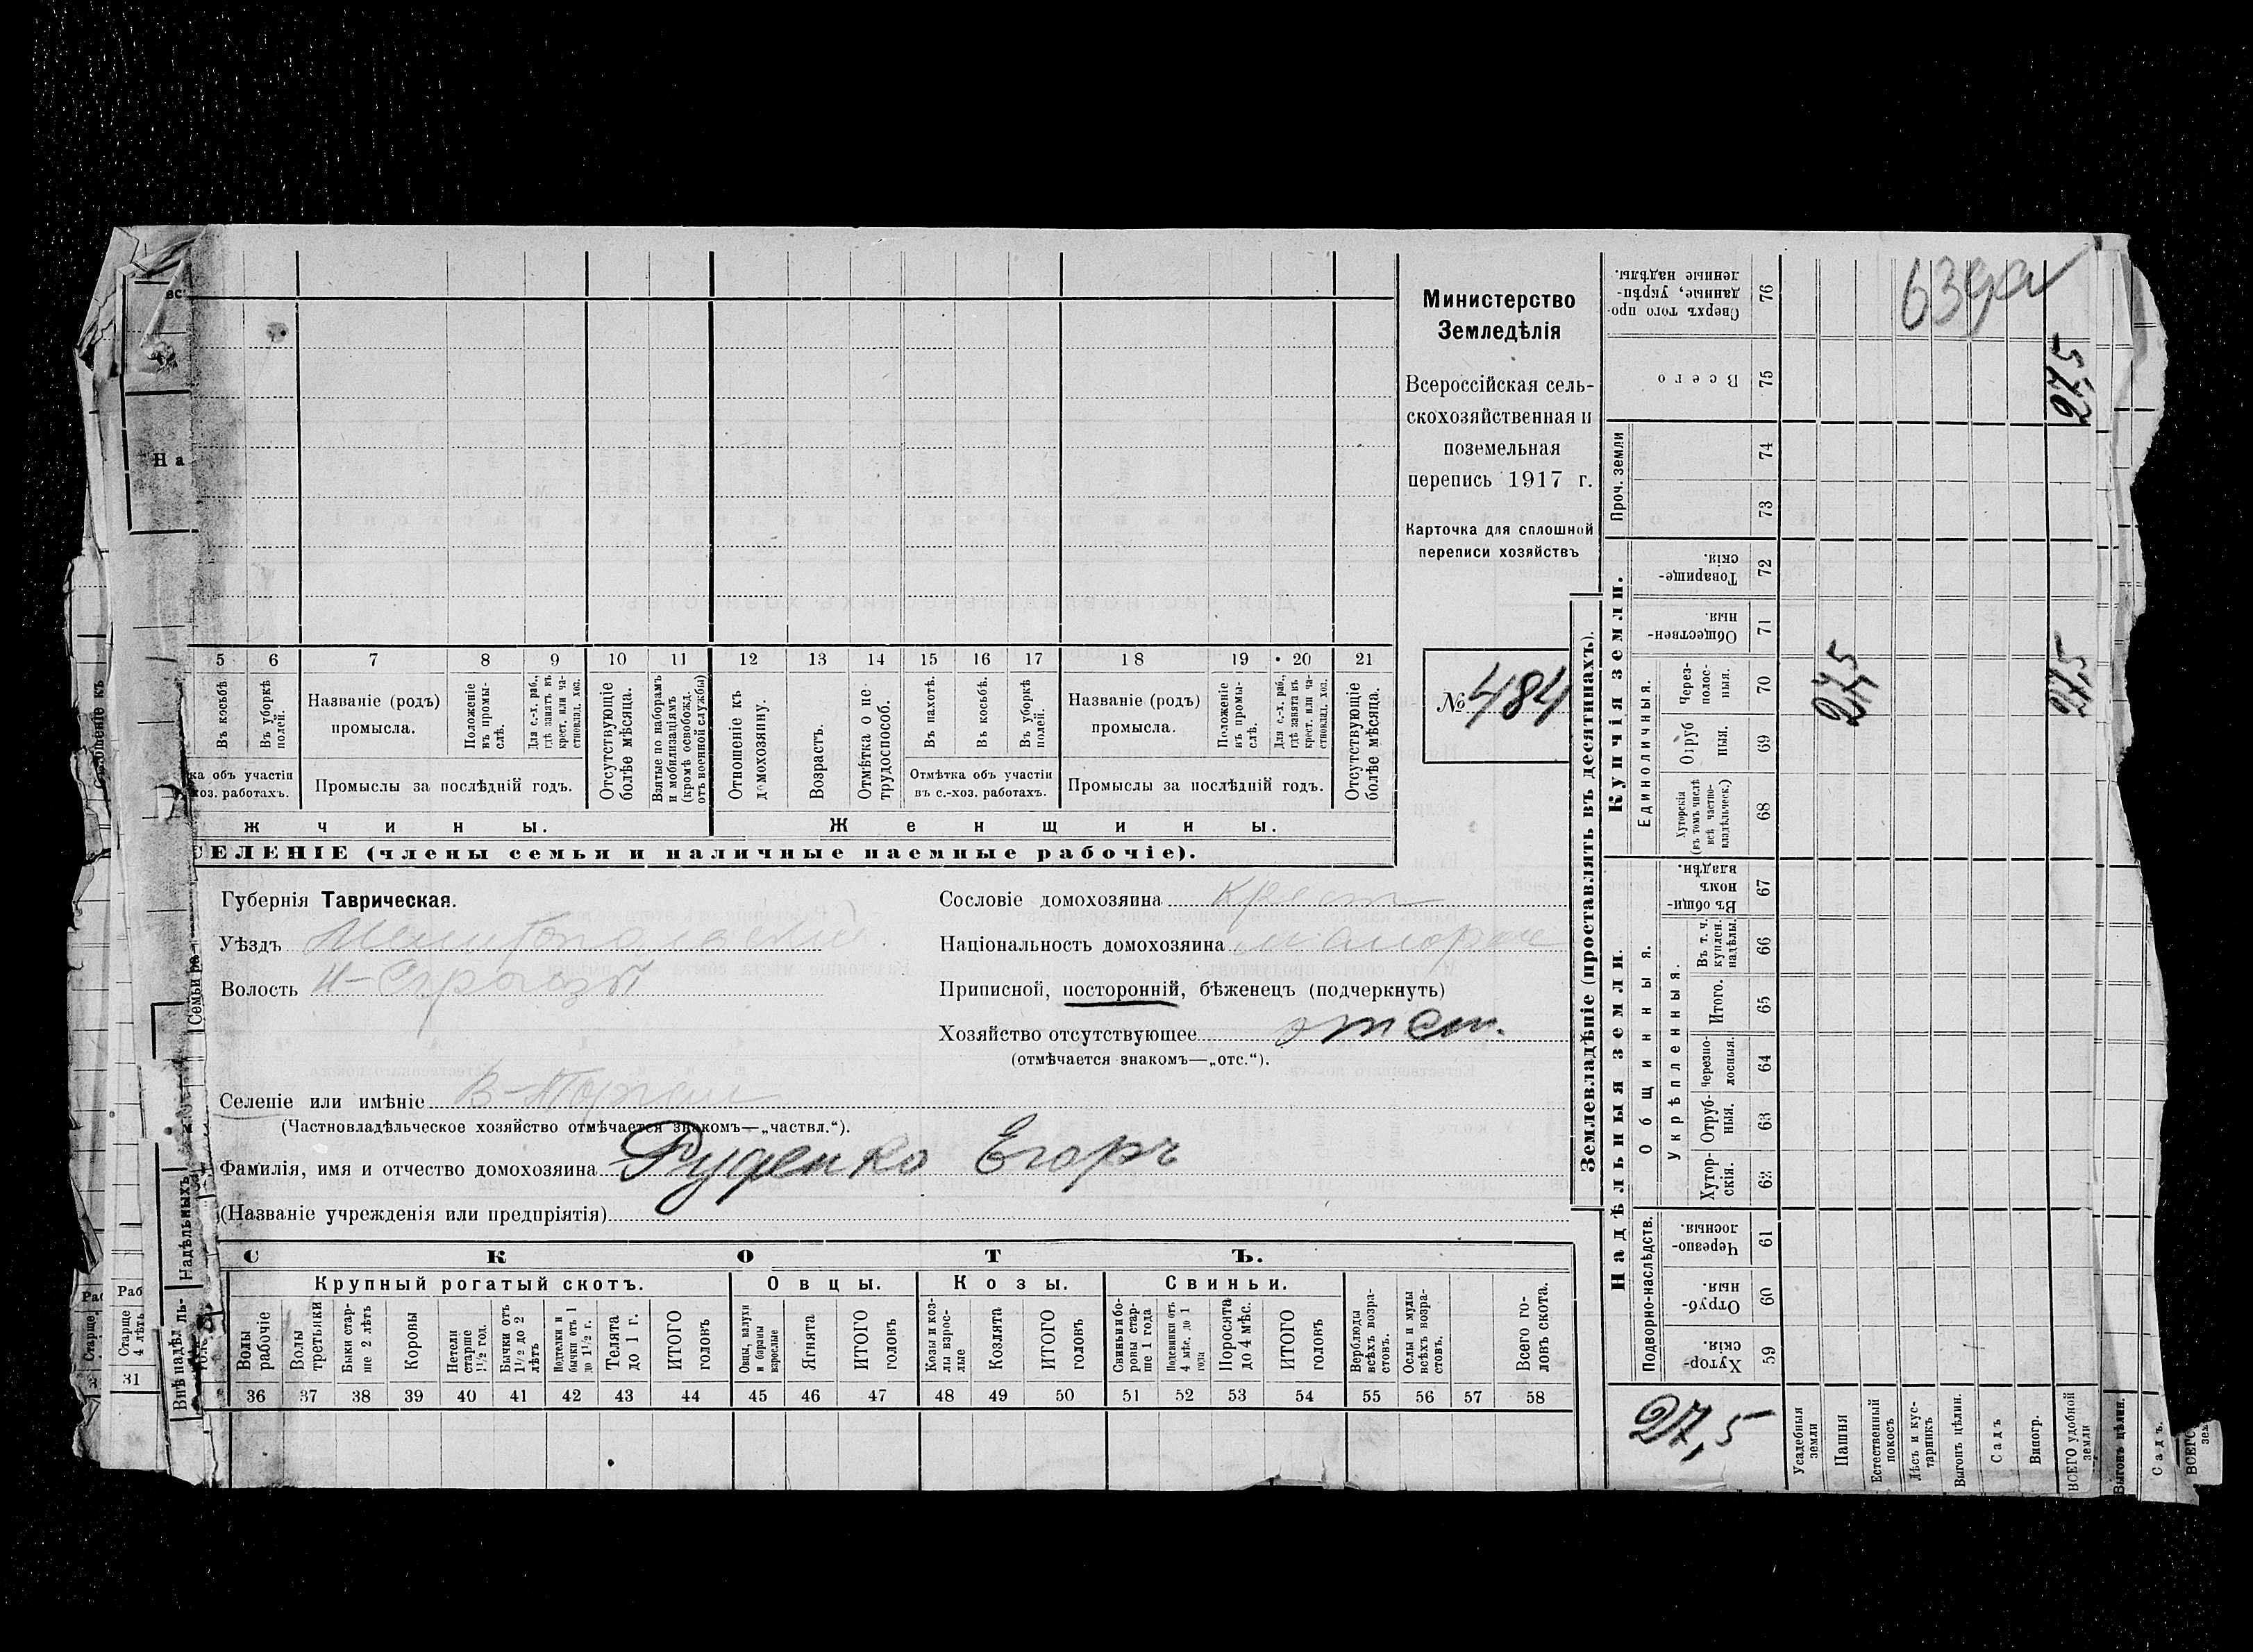 Министерство
Земледѣлія
Всероссійская сель-
скохозяйственная и
поземельная
перепись 1917 г.
Карточка для сплошной
переписи хозяйствъ
№ 484
5 6 7 8 9 10 11 12 13 14 15 16 17 18 19 20 21
Въ косьбѣ.
Въ уборкѣ полей.
Названіе (родъ) промысла.
Положеніе въ промы- слѣ.
Для с.-х. раб., гдѣ занятъ въ крест. или ча- стновлад. хоз.
Отсутствующіе болѣе мѣсяца.
Взятые по наборамъ и мобилизаціямъ (кромѣ освобожд. отъ военной службы)
Отношеніе къ домохозяину.
Возрастъ.
Отмѣтка о не- трудоспособ.
Въ пахотѣ.
Въ косьбѣ.
Въ уборкѣ полей.
Названіе (родъ) промысла.
Положеніе въ промы- слѣ.
Для с.-х. раб., гдѣ занята въ крест. или ча- стновлад. хоз.
Отсутствующіе болѣе мѣсяца.
ка объ участіи
хоз. работахъ.
Промыслы за послѣдній годъ.
Отмѣтка объ участіи
въ с.-хоз. работахъ.
Промыслы за послѣдній годъ.
жчины. Женщины.
СЕЛЕНІЕ (члены семьи и наличные наемные рабочіе).
Губернія Таврическая.
Уѣздъ Мелитопольский
Волость Н-Серогозы
Селеніе или имѣніе В-Торгаи
(Частновладѣльческое хозяйство отмѣчается знакомъ—„частвл.“).
Фамилія, имя и отчество домохозяина Руденко Егоръ
(Названіе учрежденія или предпріятія)
Сословіе домохозяина крест
Національность домохозяина малорос
Приписной, посторонній, бѣженецъ (подчеркнуть)
Хозяйство отсутствующее
(отмѣчается знакомъ—„отс.“).
СКОТЪ.
Крупный рогатый скотъ. Овцы. Козы. Свиньи.
Волы рабочіе
Волы третьяки
Быки стар- ше 2 лѣтъ
Коровы
Нетели старше 1½ год.
Бычки отъ 1½ до 2 лѣтъ
Подтелки и бычки отъ 1 до 1½ г.
Телята до 1 г.
ИТОГО головъ
Овцы, валухи и бараны взрослые
Ягнята
ИТОГО головъ
Козы и коз- лы взрос- лые
Козлята
ИТОГО головъ
Свиньи бо- ровы стар- ше 1 года
Подсвинки отъ 4 мѣс. до 1 года
Поросята до 4 мѣс.
ИТОГО головъ
Верблюды всѣхъ возра- стовъ.
Ослы и мулы всѣхъ возра- стовъ.
Всего го- ловъ скота.
36 37 38 39 40 41 42 43 44 45 46 47 48 49 50 51 52 53 54 55 56 57 58
Землевладѣніе (проставлять въ десятинахъ).
Надѣльныя земли. Купчія земли. Проч. земли
Подворно-наслѣдств.
Общинныя.
Укрѣпленныя.
Единоличныя.
Хутор- скія. 59
Отруб- ныя. 60
Черезпо- лосныя. 61
Хутор- скія. 62
Отруб- ныя. 63
Черезпо- лосныя. 64
Итого. 65
Въ т. ч. куплен. надѣлы. 66
Въ общи- номъ владѣн. 67
Хуторскія (въ томъ числѣ всѣ частно- владѣльческ.) 68
Отруб ныя. 69
Через- полос- ныя. 70
Обществен- ныя 71
Товарище- скія. 72
73
74
Всего 75
Сверхъ того про- данные, укрѣп- ленные надѣлы. 76
27,5
Усадебныя земли
Пашня 27,5
Естественный покосъ
Лѣсъ и кус- тарникъ
Выгонъ цѣлин.
Садъ
Виногр.
ВСЕГО удобной земли 27,5 27,5
Выгонъ цѣлин.
Садъ.
ВСЕГО
На
Семьи ра
Надѣльныхъ
Внѣ надѣль-
Раб
Старше 4 лѣтъ
31